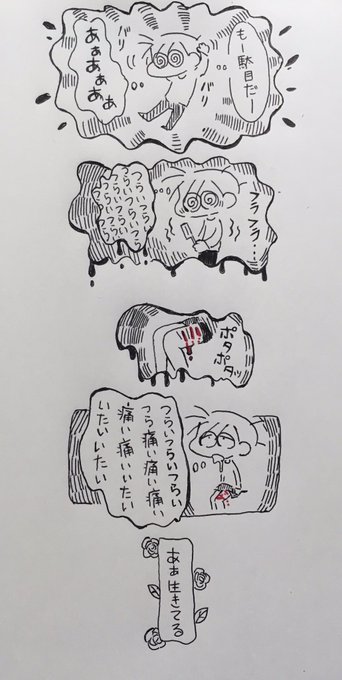 もー駄目だー
バリ
バリ
あぁあぁあぁ
フラフラ…
つらいつらい
つらいつらい
つらいつらい
つらいつらい
ポタ
ポタッ
つらいつらいつらい
つら痛い痛い痛い
痛い痛いいたい
いたいいたい
あぁ生きてる